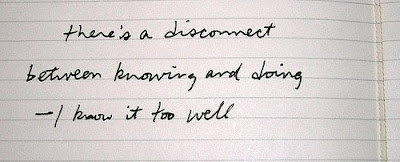 there's a disconnect
between knowing and doing
—I know it too well